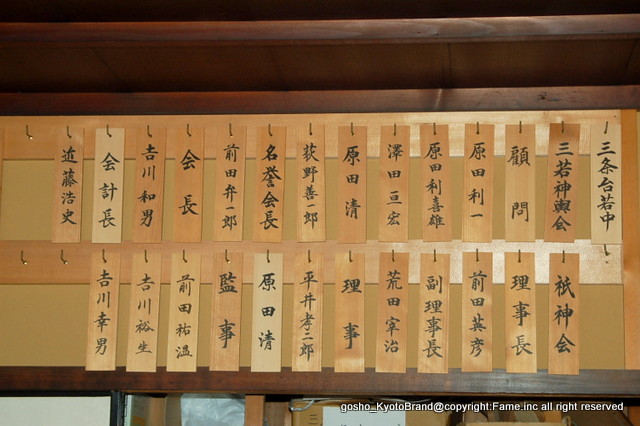 三条台若中
三若神輿会
顧問
原田利一
原田利喜雄
澤田亘宏
原田清
荻野善一郎
名誉会長
前田弁一郎
会長
吉川和男
会計長
近藤浩史
祇神会
理事長
前田英彦
副理事長
荒田宰治
理事
平井孝二郎
原田清
監事
前田祐温
吉川裕生
吉川幸男
gosho_KyotoBrand@copyright:Fame.inc all right reserved